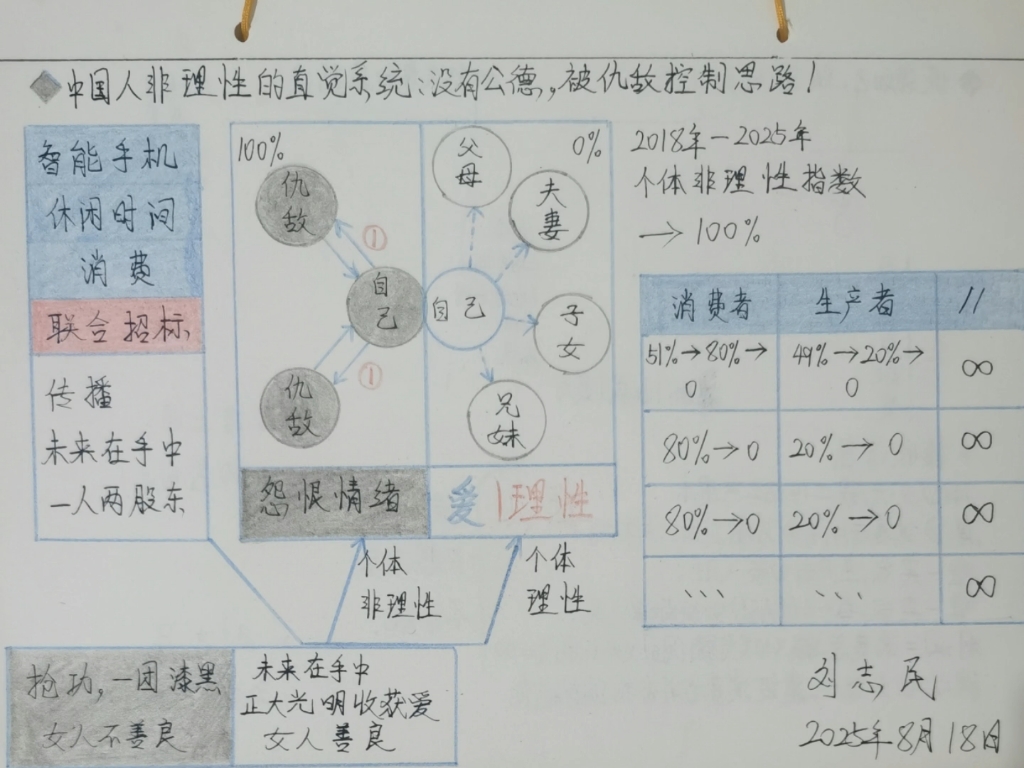 中国人非理性的直觉系统:没有公德,被仇敌控制思路!
智能手机
休闲时间
消费
联合招标
传播
未来在手中
一人两股东
100%
仇敌
①
自己
①
仇敌
怨恨情绪
0%
父母
夫妻
自己
子女
兄妹
爱|理性
个体
非理性
个体
理性
2018年—2025年
个体非理性指数
→100%
消费者 生产者 //
51%→80%→0 49%→20%→0 ∞
80%→0 20%→0 ∞
80%→0 20%→0 ∞
... ... ∞
抢功,一团漆黑
女人不善良
未来在手中
正大光明收获爱
女人善良
刘志民
2025年8月18日